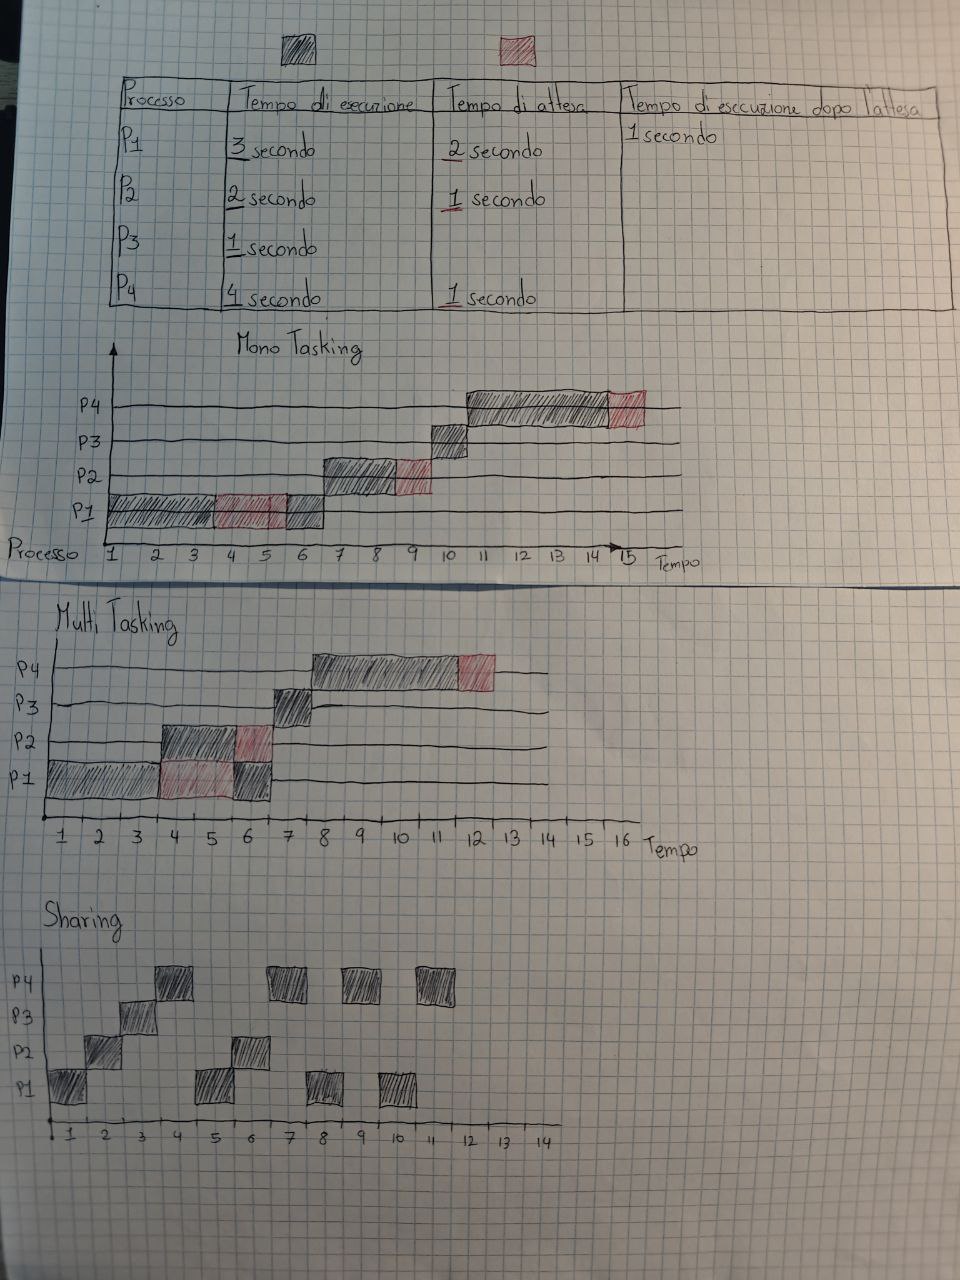 Processo Tempo di esecuzione Tempo di attesa Tempo di esecuzione dopo l'attesa
P1 3 secondo 2 secondo 1 secondo
P2 2 secondo 1 secondo
P3 1 secondo
P4 4 secondo 1 secondo
Mono Tasking
P4
P3
P2
P1
Processo 1 2 3 4 5 6 7 8 9 10 11 12 13 14 15 Tempo
Multi Tasking
P4
P3
P2
P1
1 2 3 4 5 6 7 8 9 10 11 12 13 14 15 16 Tempo
Sharing
P4
P3
P2
P1
1 2 3 4 5 6 7 8 9 10 11 12 13 14